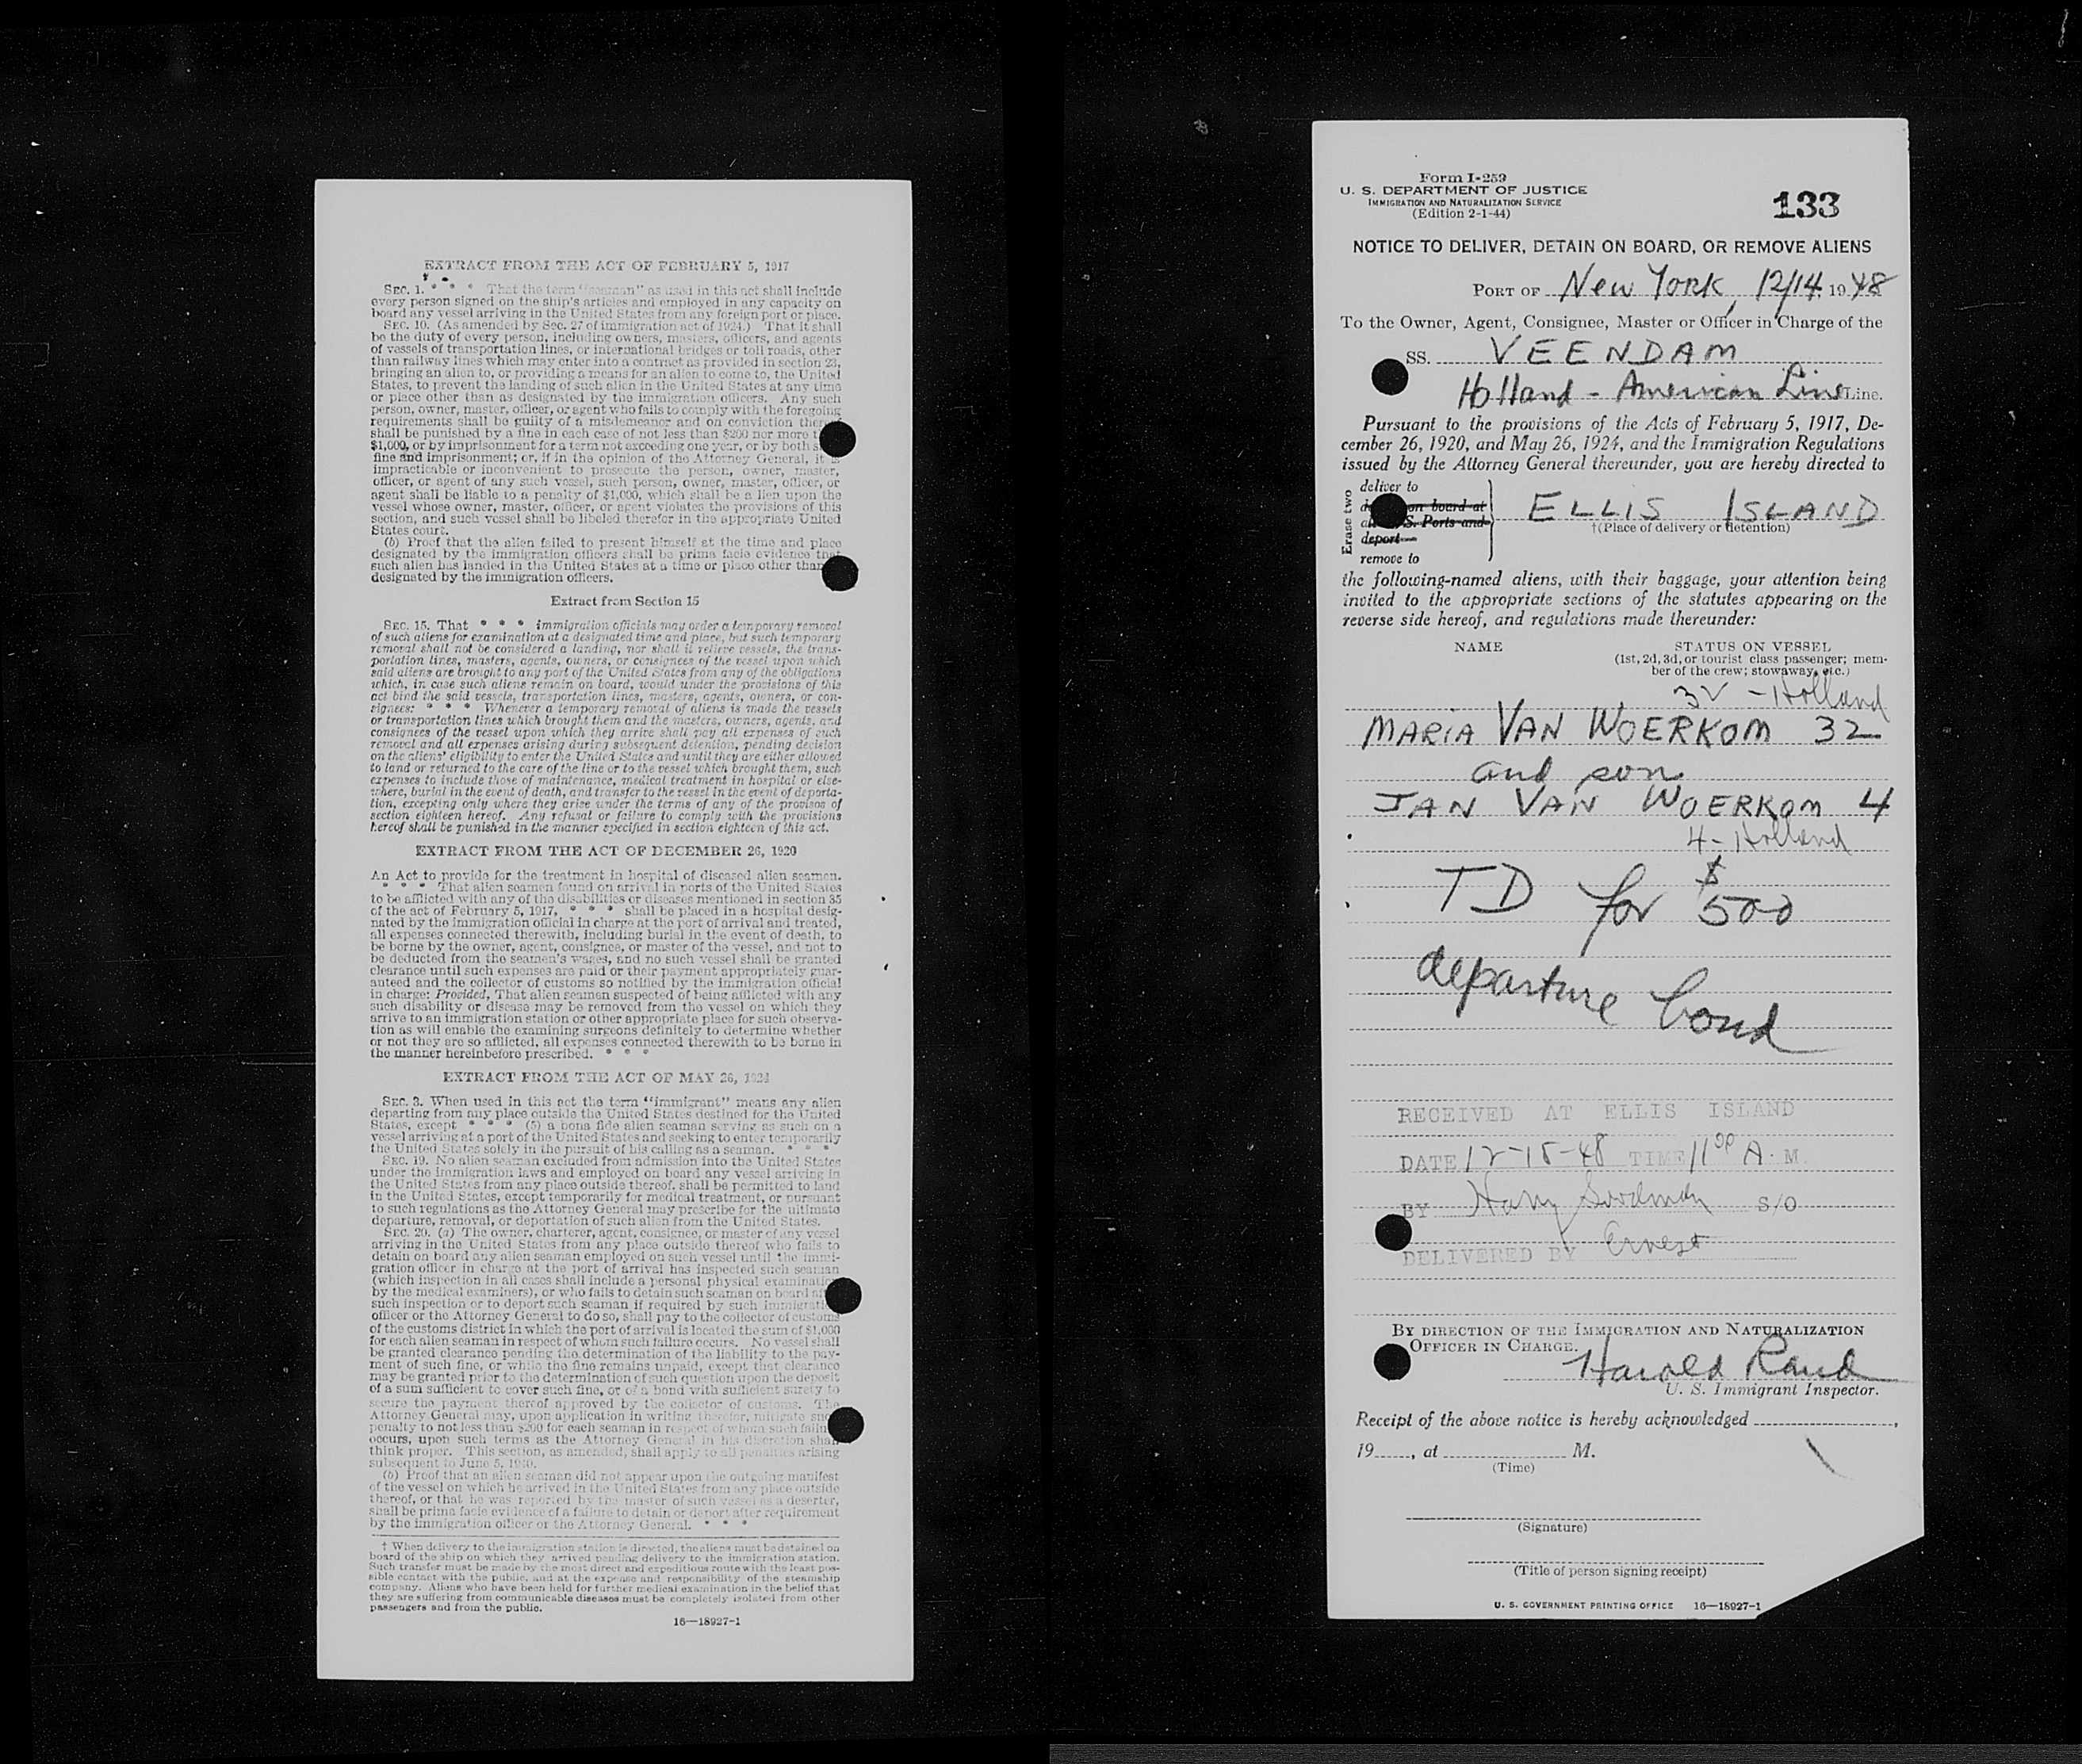 EXTRACT FROM THE ACT OF FEBRUARY 5, 1917
SEC. 1. * * * That the term "seaman" as used in this act shall include
every person signed on the ship's articles and employed in any capacity on
board any vessel arriving in the United States from any foreign port or place.
SEC. 10. (As amended by Sec. 27 of immigration act of 1924.) That it shall
be the duty of every person, including owners, masters, officers, and agents
of vessels of transportation lines, or international bridges or toll roads, other
than railway lines which may enter into a contract as provided in section 23,
bringing an alien to, or providing a means for an alien to come to, the United
States, to prevent the landing of such alien in the United States at any time
or place other than as designated by the immigration officers. Any such
person, owner, master, officer, or agent who fails to comply with the foregoing
requirements shall be guilty of a misdemeanor and on conviction there
shall be punished by a fine in each case of not less than $200 nor more t
$1,000, or by imprisonment for a term not exceeding one year, or by both s
fine and imprisonment; or, if in the opinion of the Attorney General, it is
impracticable or inconvenient to prosecute the person, owner, master,
officer, or agent of any such vessel, such person, owner, master, officer, or
agent shall be liable to a penalty of $1,000, which shall be a lien upon the
vessel whose owner, master, officer, or agent violates the provisions of this
section, and such vessel shall be libeled therefor in the appropriate United
States court.
(b) Proof that the alien failed to present himself at the time and place
designated by the immigration officers shall be prima facie evidence that
such alien has landed in the United States at a time or place other than
designated by the immigration officers.
Extract from Section 15
SEC. 15. That * * * immigration officials may order a temporary removal
of such aliens for examination at a designated time and place, but such temporary
removal shall not be considered a landing, nor shall it relieve vessels, the trans-
portation lines, masters, agents, owners, or consignees of the vessel upon which
said aliens are brought to any port of the United States from any of the obligations
which, in case such aliens remain on board, would under the provisions of this
act bind the said vessels, transportation lines, masters, agents, owners, or con-
signees: * * * Whenever a temporary removal of aliens is made the vessels
or transportation lines which brought them and the masters, owners, agents, and
consignees of the vessel upon which they arrive shall pay all expenses of such
removal and all expenses arising during subsequent detention, pending decision
on the aliens' eligibility to enter the United States and until they are either allowed
to land or returned to the care of the line or to the vessel which brought them, such
expenses to include those of maintenance, medical treatment in hospital or else-
where, burial in the event of death, and transfer to the vessel in the event of deporta-
tion, excepting only where they arise under the terms of any of the provisos of
section eighteen hereof. Any refusal or failure to comply with the provisions
hereof shall be punished in the manner specified in section eighteen of this act.
EXTRACT FROM THE ACT OF DECEMBER 26, 1920
An Act to provide for the treatment in hospital of diseased alien seamen.
* * * That alien seamen found on arrival in ports of the United States
to be afflicted with any of the disabilities or diseases mentioned in section 35
of the act of February 5, 1917, * * * shall be placed in a hospital desig-
nated by the immigration official in charge at the port of arrival and treated,
all expenses connected therewith, including burial in the event of death, to
be borne by the owner, agent, consignee, or master of the vessel, and not to
be deducted from the seamen's wages, and no such vessel shall be granted
clearance until such expenses are paid or their payment appropriately guar-
anteed and the collector of customs so notified by the immigration official
in charge: Provided, That alien seamen suspected of being afflicted with any
such disability or disease may be removed from the vessel on which they
arrive to an immigration station or other appropriate place for such observa-
tion as will enable the examining surgeons definitely to determine whether
or not they are so afflicted, all expenses connected therewith to be borne in
the manner hereinbefore prescribed. * * *
EXTRACT FROM THE ACT OF MAY 26, 1924
SEC. 3. When used in this act the term "immigrant" means any alien
departing from any place outside the United States destined for the United
States, except * * * (5) a bona fide alien seaman serving as such on a
vessel arriving at a port of the United States and seeking to enter temporarily
the United States solely in the pursuit of his calling as a seaman. * * *
SEC. 19. No alien seaman excluded from admission into the United States
under the immigration laws and employed on board any vessel arriving in
the United States from any place outside thereof, shall be permitted to land
in the United States, except temporarily for medical treatment, or pursuant
to such regulations as the Attorney General may prescribe for the ultimate
departure, removal, or deportation of such alien from the United States.
SEC. 20. (a) The owner, charterer, agent, consignee, or master of any vessel
arriving in the United States from any place outside thereof who fails to
detain on board any alien seaman employed on such vessel until the immi-
gration officer in charge at the port of arrival has inspected such seaman
(which inspection in all cases shall include a personal physical examination
by the medical examiners), or who fails to detain such seaman on board af
such inspection or to deport such seaman if required by such immigrati
officer or the Attorney General to do so, shall pay to the collector of customs
of the customs district in which the port of arrival is located the sum of $1,000
for each alien seaman in respect of whom such failure occurs. No vessel shall
be granted clearance pending the determination of the liability to the pay-
ment of such fine, or while the fine remains unpaid, except that clearance
may be granted prior to the determination of such question upon the deposit
of a sum sufficient to cover such fine, or of a bond with sufficient surety to
secure the payment thereof approved by the collector of customs. The
Attorney General may, upon application in writing therefor, mitigate suc
penalty to not less than $200 for each seaman in respect of whom such failu
occurs, upon such terms as the Attorney General in his discretion shall
think proper. This section, as amended, shall apply to all penalties arising
subsequent to June 5, 1940.
(b) Proof that an alien seaman did not appear upon the outgoing manifest
of the vessel on which he arrived in the United States from any place outside
thereof, or that he was reported by the master of such vessel as a deserter,
shall be prima facie evidence of a failure to detain or deport after requirement
by the immigration officer or the Attorney General. * * *
† When delivery to the immigration station is directed, the aliens must be detained on
board of the ship on which they arrived pending delivery to the immigration station.
Such transfer must be made by the most direct and expeditious route with the least pos-
sible contact with the public, and at the expense and responsibility of the steamship
company. Aliens who have been held for further medical examination in the belief that
they are suffering from communicable diseases must be completely isolated from other
passengers and from the public.
16—18927-1
Form I-259
U. S. DEPARTMENT OF JUSTICE
IMMIGRATION AND NATURALIZATION SERVICE
(Edition 2-1-44)
133
NOTICE TO DELIVER, DETAIN ON BOARD, OR REMOVE ALIENS
PORT OF New York, 12/14 1948
To the Owner, Agent, Consignee, Master or Officer in Charge of the
SS. VEENDAM
Holland - American Line Line.
Pursuant to the provisions of the Acts of February 5, 1917, De-
cember 26, 1920, and May 26, 1924, and the Immigration Regulations
issued by the Attorney General thereunder, you are hereby directed to
Erase two
deliver to
on board at
S. Ports and
deport
remove to
ELLIS ISLAND
†(Place of delivery or detention)
the following-named aliens, with their baggage, your attention being
invited to the appropriate sections of the statutes appearing on the
reverse side hereof, and regulations made thereunder:
NAME STATUS ON VESSEL
(1st, 2d, 3d, or tourist class passenger; mem-
ber of the crew; stowaway, etc.)
32 - Holland
MARIA VAN WOERKOM 32
and son
JAN VAN WOERKOM 4
4 - Holland
TD for $500
departure bond
RECEIVED AT ELLIS ISLAND
DATE 12-15-48 TIME 11 00 A. M.
BY Harry Goodman S/O
DELIVERED BY Ernest
BY DIRECTION OF THE IMMIGRATION AND NATURALIZATION
OFFICER IN CHARGE.
Harold Rand
U. S. Immigrant Inspector.
Receipt of the above notice is hereby acknowledged ,
19 , at M.
(Time)
(Signature)
(Title of person signing receipt)
U. S. GOVERNMENT PRINTING OFFICE 16—18927-1